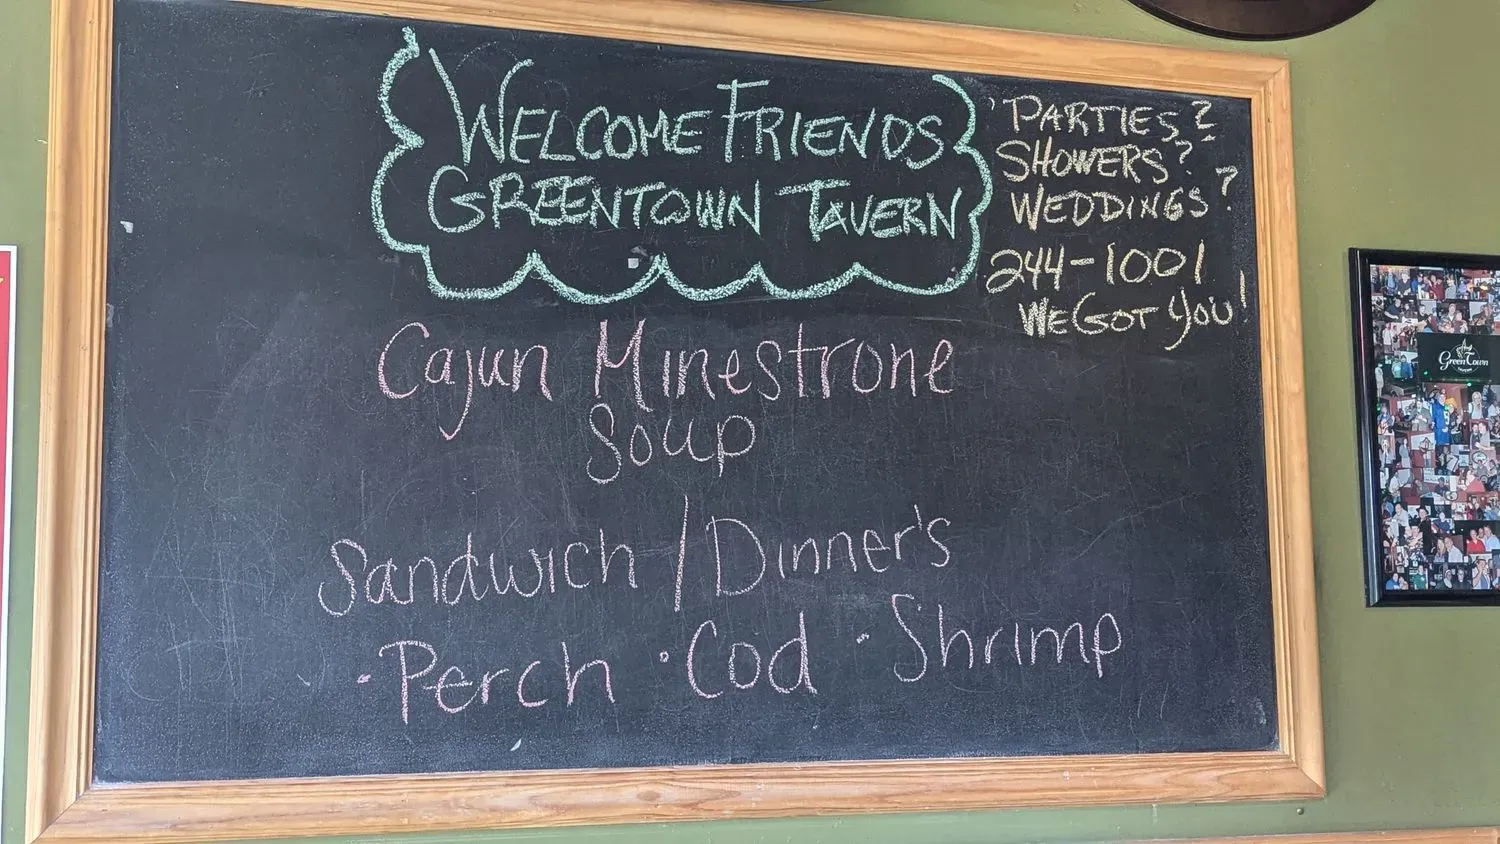 WELCOME FRIENDS
GREENTOWN TAVERN
PARTIES?
SHOWERS?
WEDDINGS?
244-1001
WE GOT YOU!
Cajun Minestrone
Soup
Sandwich / Dinner's
· Perch · Cod · Shrimp
GreenTown